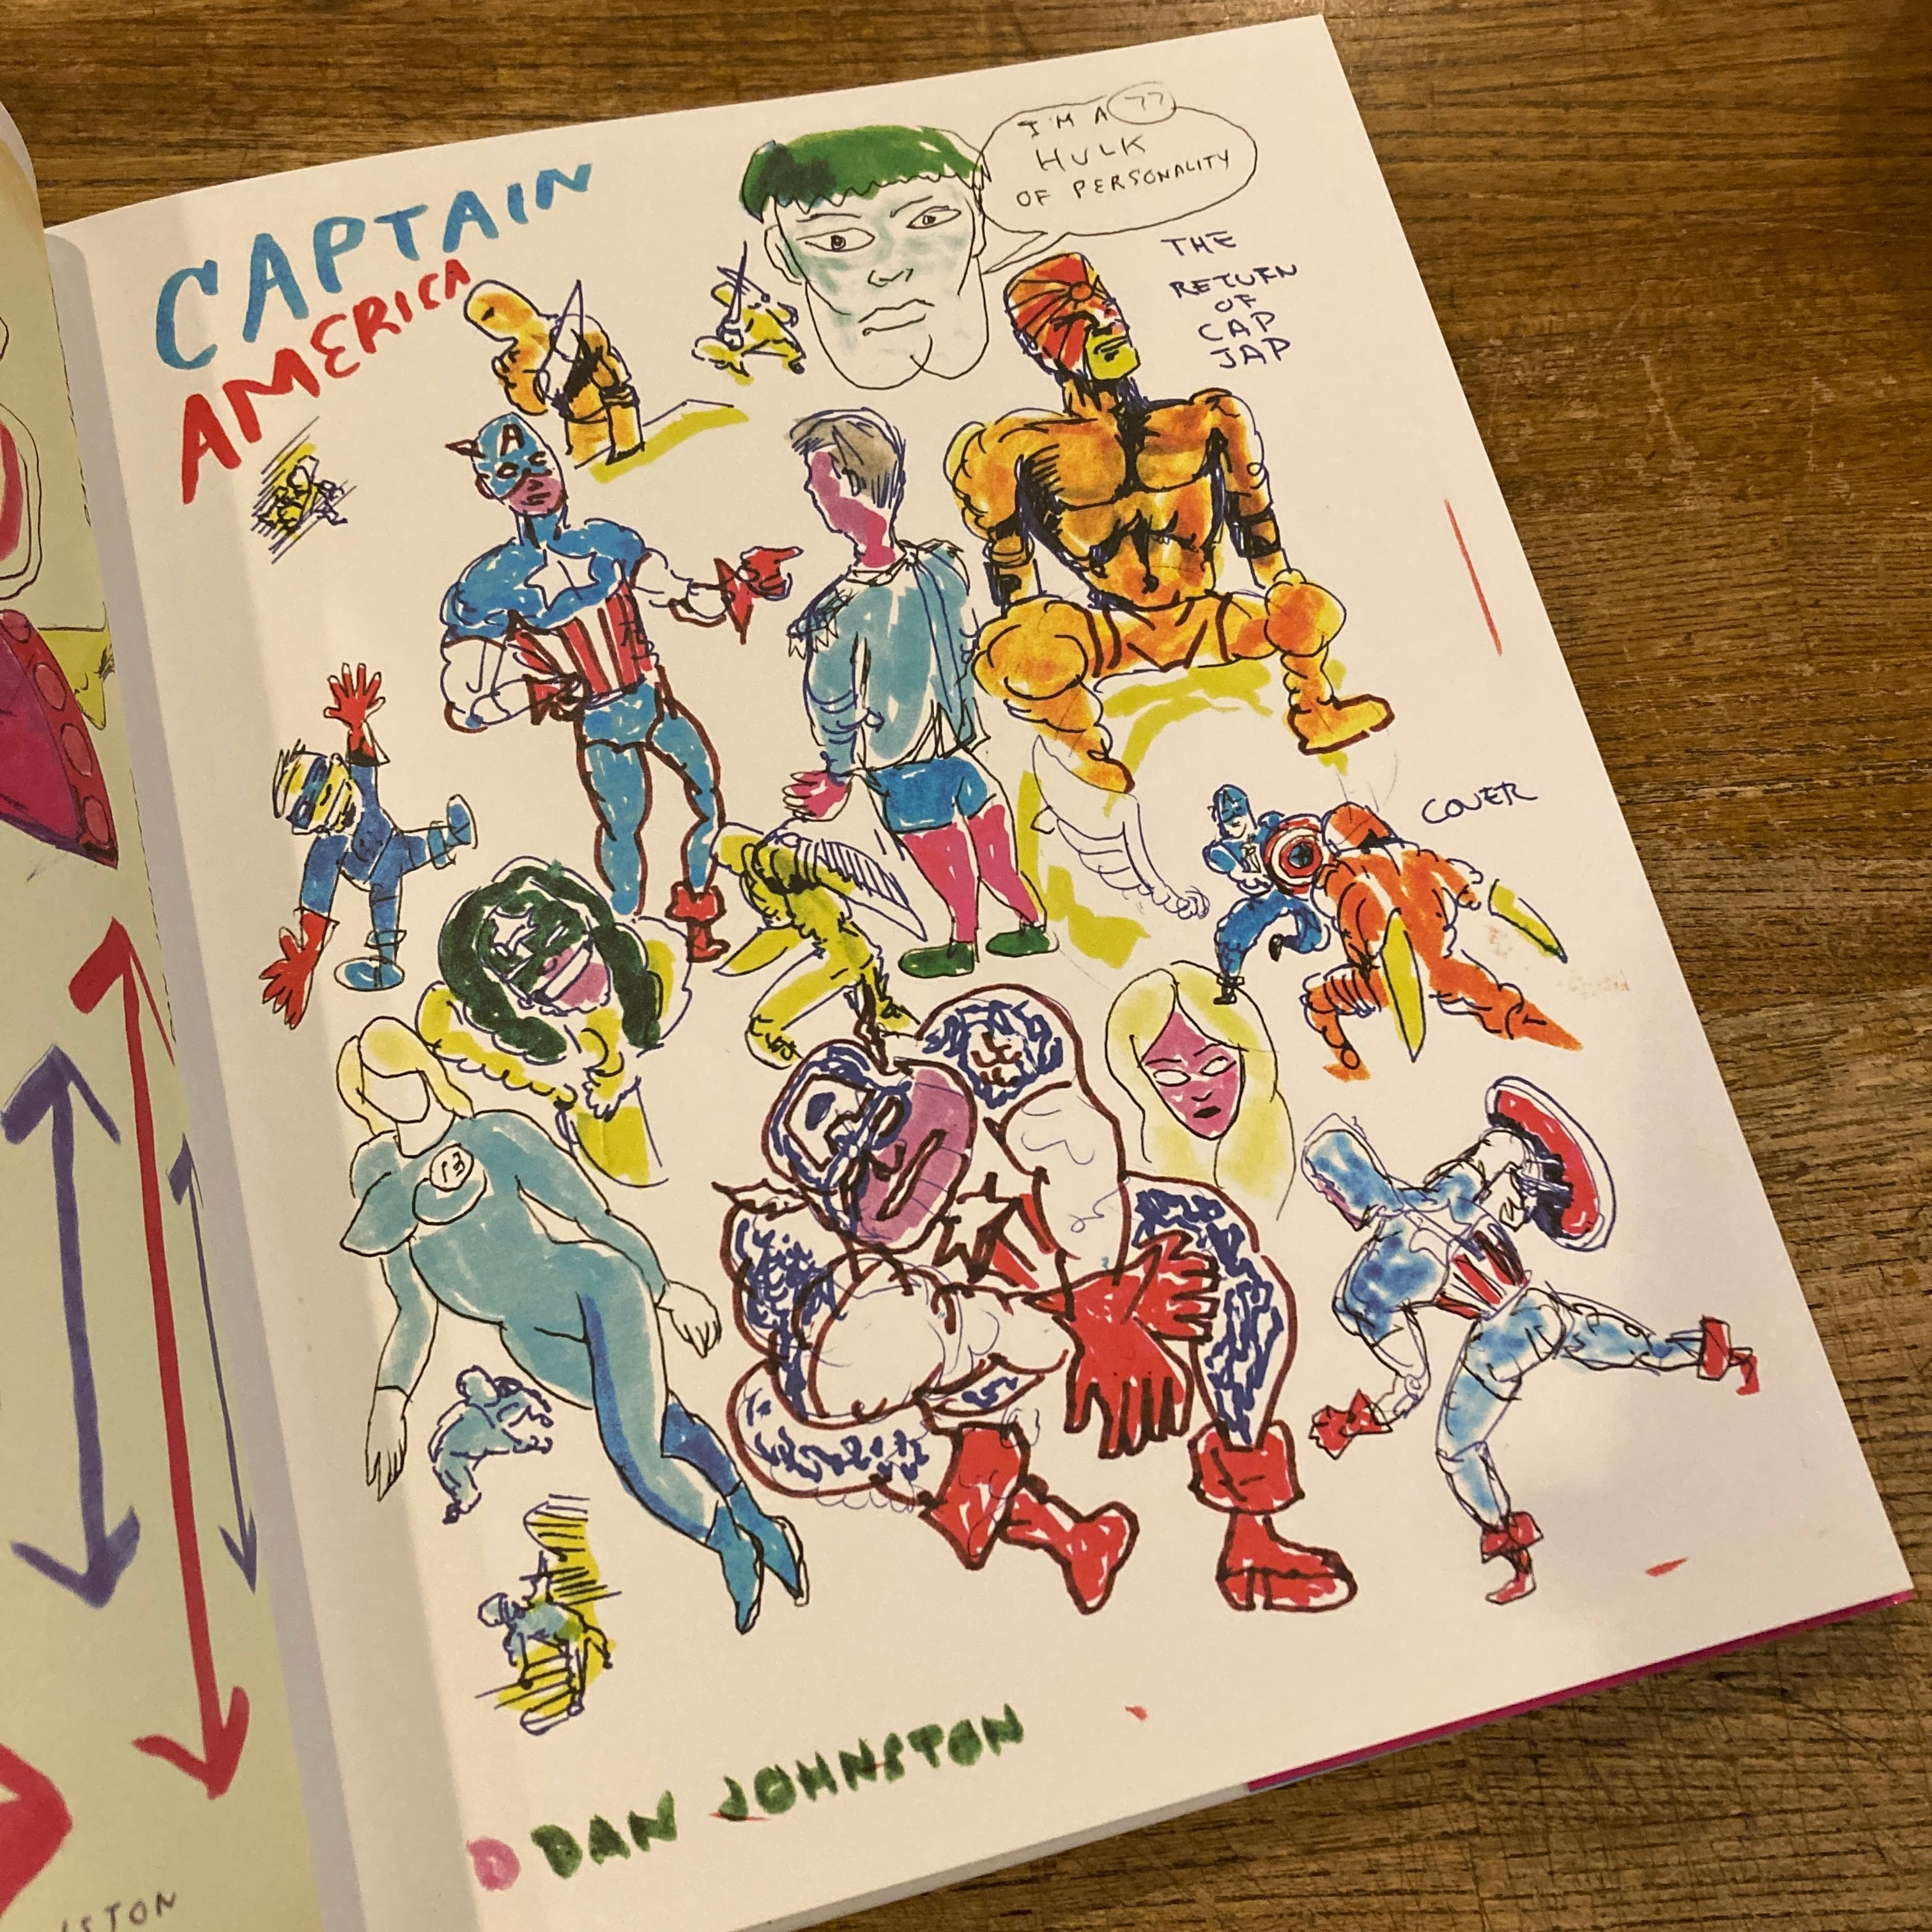 CAPTAIN
AMERICA
I'M A ??
HULK
OF PERSONALITY
THE
RETURN
OF
CAP
JAP
A
COVER
13
D DAN JOHNSTON